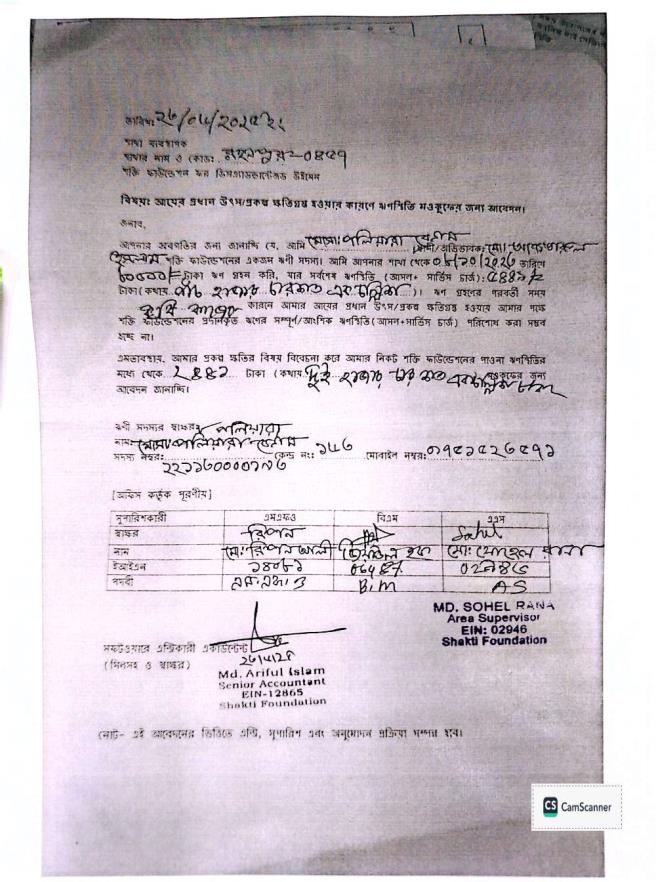 তারিখঃ
শাখা ব্যবস্থাপক
শাখার নাম ও কোডঃ মহনপুর-০৪৫৭
শক্তি ফাউন্ডেশন ফর ডিসএ্যাডভান্টেজড উইমেন
বিষয়ঃ আয়ের প্রধান উৎস/প্রকল্প ক্ষতিগ্রস্থ হওয়ার কারণে ঋণস্থিতি মওকুফের জন্য আবেদন।
জনাব,
আপনার অবগতির জন্য জানাচ্ছি যে, আমি মোসাঃ পলিয়ারা বেগম স্বামী/অভিভাবকঃ মোঃ
শক্তি ফাউন্ডেশনের একজন ঋণী সদস্য। আমি আপনার শাখা থেকে তারিখে
টাকা ঋণ গ্রহন করি, যার সর্বশেষ ঋণস্থিতি (আসল+ সার্ভিস চার্জ)ঃ ৫৪৪১/=
টাকা (কথায় পাঁচ হাজার চারশত একচল্লিশ)। ঋণ গ্রহণের পরবর্তী সময়
কারনে আমার আয়ের প্রধান উৎস/প্রকল্প ক্ষতিগ্রস্থ হওয়ায় আমার পক্ষে
শক্তি ফাউন্ডেশনের প্রদানকৃত ঋণের সম্পূর্ণ/আংশিক ঋণস্থিতি (আসল+সার্ভিস চার্জ) পরিশোধ করা সম্ভব
হচ্ছে না।
এমতাবস্থায়, আমার প্রকল্প ক্ষতির বিষয় বিবেচনা করে আমার নিকট শক্তি ফাউন্ডেশনের পাওনা ঋণস্থিতির
মধ্যে থেকে ২৪৪১ টাকা (কথায় দুই হাজার চার শত একচল্লিশ মওকুফের জন্য
আবেদন জানাচ্ছি।
ঋণী সদস্যর স্বাক্ষরঃ পলিয়ারা
নামঃ মোসাঃ পলিয়ারা বেগম
সদস্য নম্বরঃ কেন্দ্র নংঃ ১৮৬ মোবাইল নম্বরঃ
[অফিস কর্তৃক পূরণীয়]
সুপারিশকারী এমএফও বিএম এএস
স্বাক্ষর রিপন Sohel
নাম মোঃ রিপন আলী হক মোঃ সোহেল রানা
ইআইএন ১৪০৮১ ০২৯৪৬
পদবী B.M AS
MD. SOHEL RANA
Area Supervisor
EIN: 02946
Shakti Foundation
সফটওয়ারে এন্ট্রিকারী একাউন্টেন্ট
(সিলসহ ও স্বাক্ষর)
Md. Ariful Islam
Senior Accountant
EIN-12865
Shakti Foundation
নোট- এই আবেদনের ভিত্তিতে এন্ট্রি, সুপারিশ এবং অনুমোদন প্রক্রিয়া সম্পন্ন হবে।
CS CamScanner